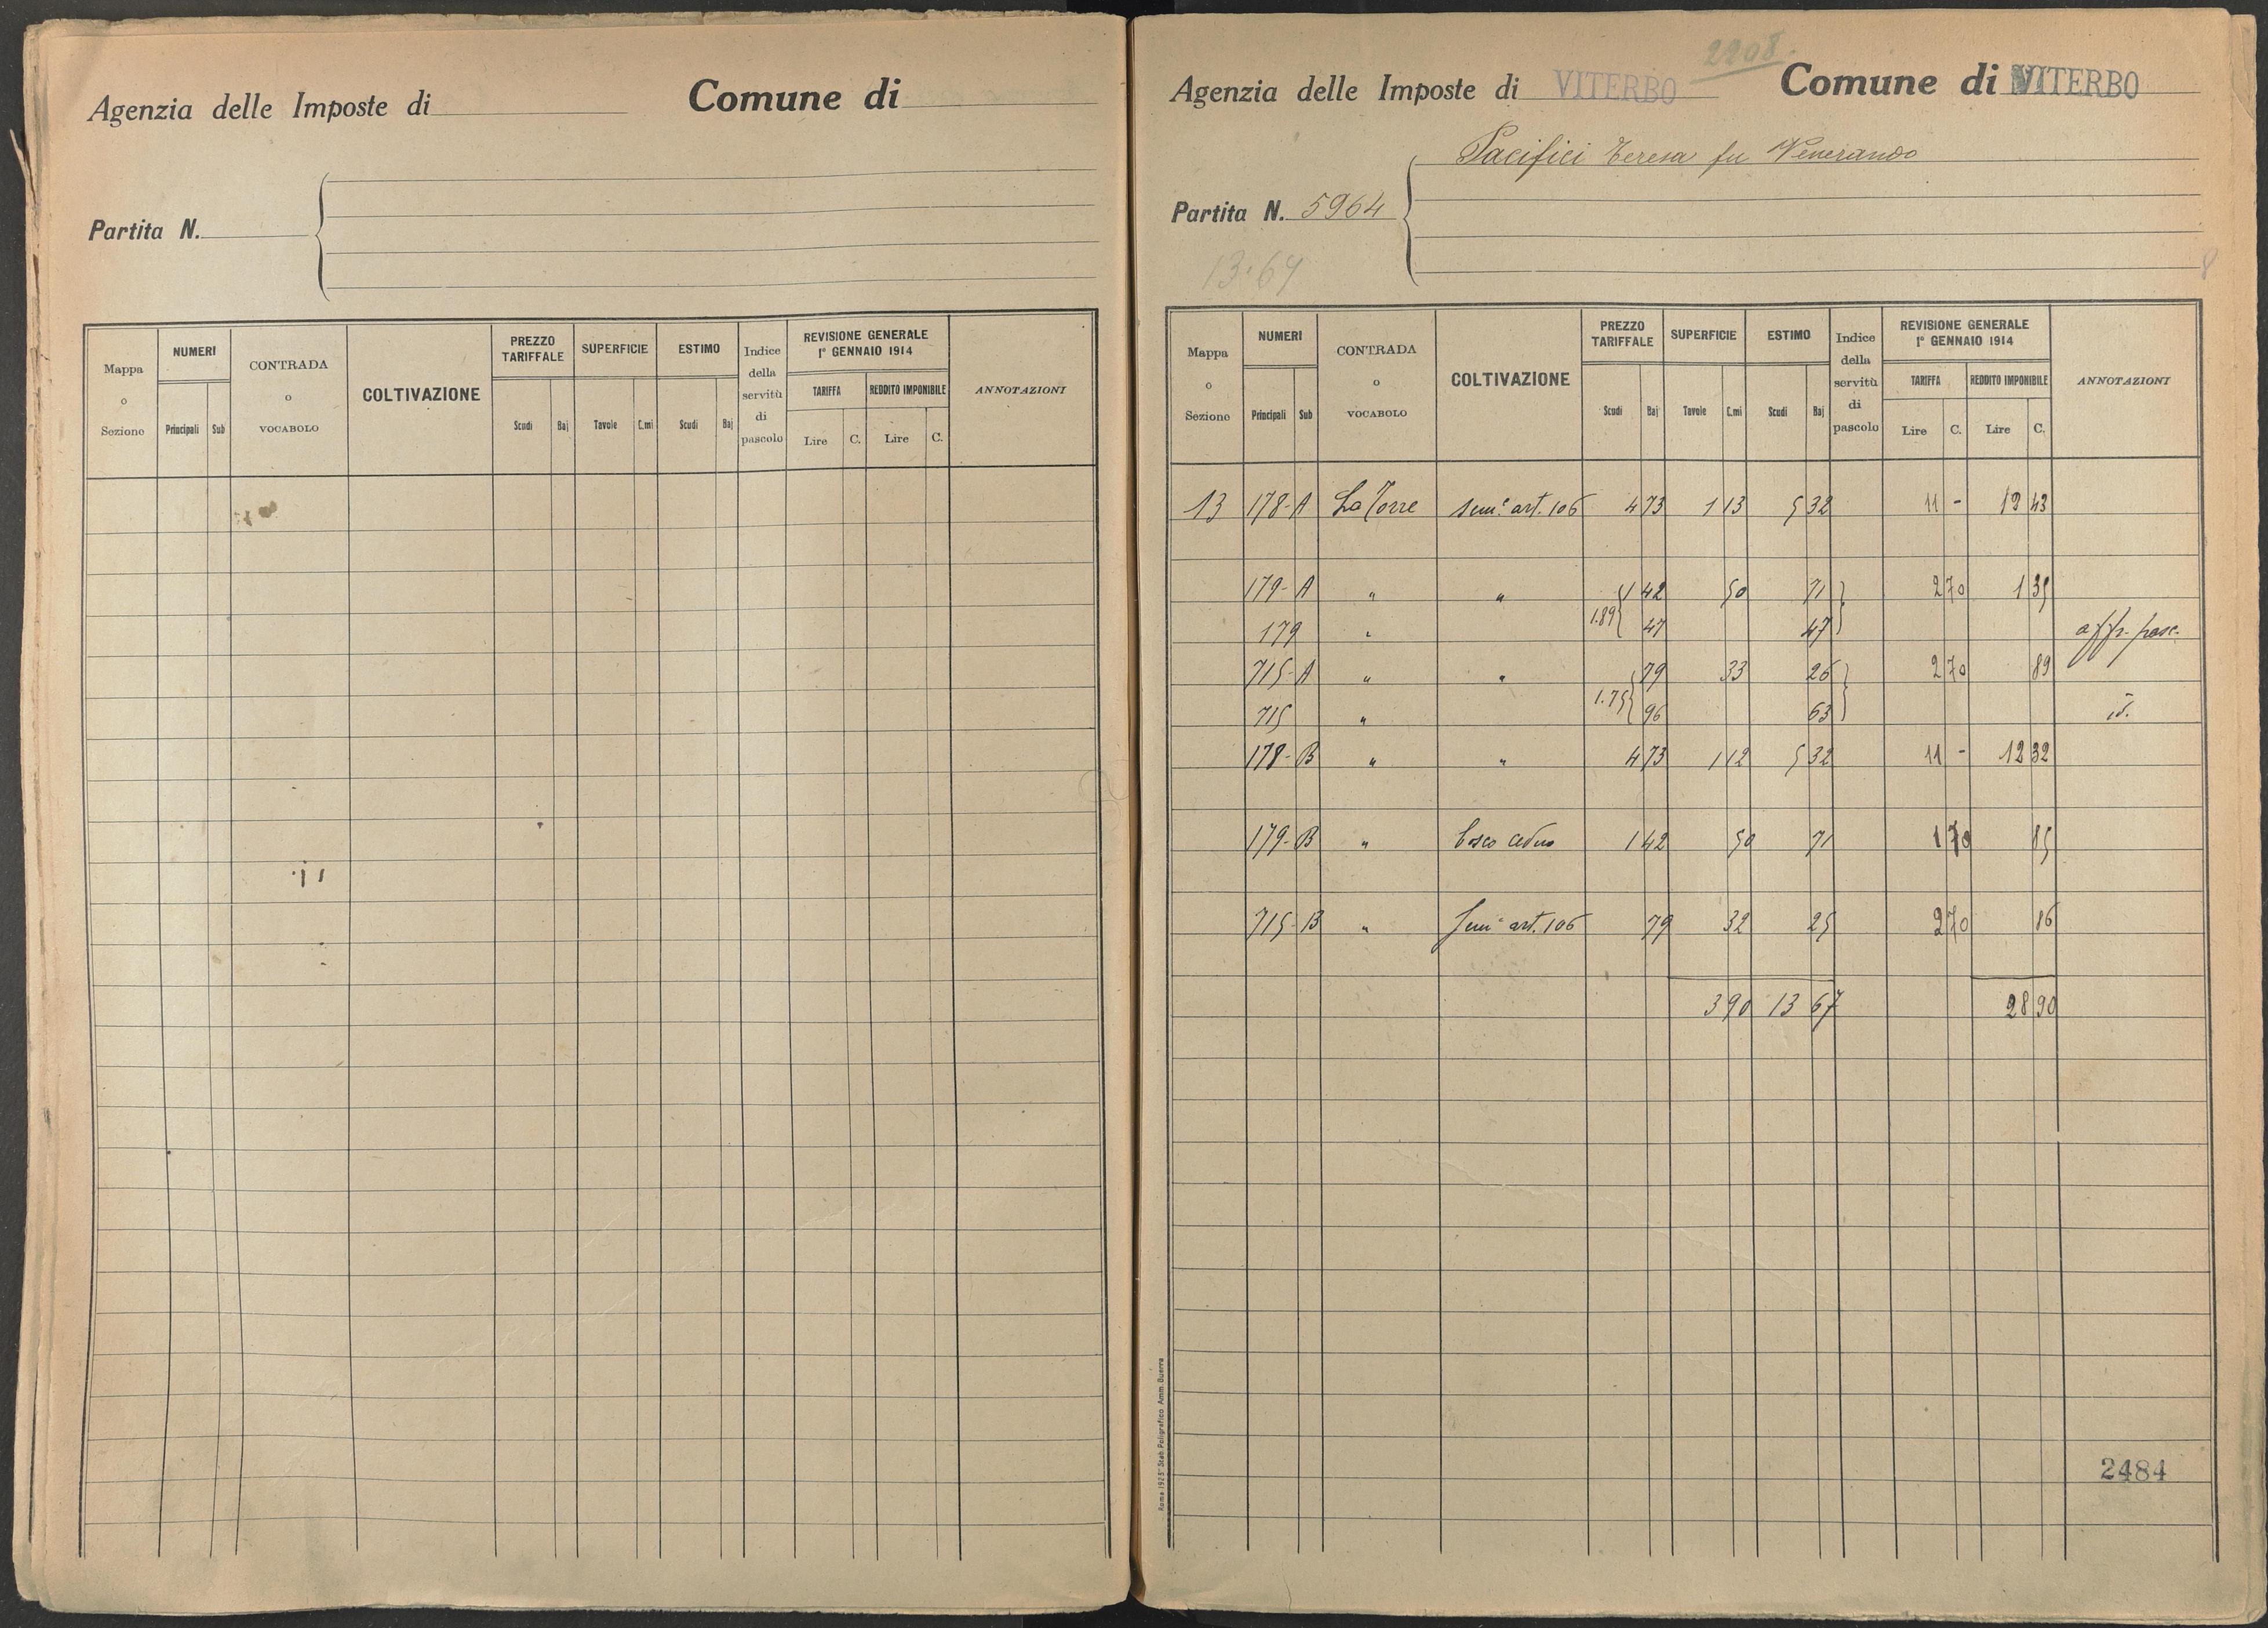 Agenzia delle Imposte di Comune di
Partita N.
Mappa o Sezione NUMERI Principali Sub CONTRADA o VOCABOLO COLTIVAZIONE PREZZO TARIFFALE Scudi Baj SUPERFICIE Tavole C.mi ESTIMO Scudi Baj Indice della servitù di pascolo REVISIONE GENERALE 1° GENNAIO 1914 TARIFFA Lire C. REDDITO IMPONIBILE Lire C. ANNOTAZIONI
2208.
Agenzia delle Imposte di VITERBO Comune di VITERBO
Pacifici Teresa fu Venerando
Partita N. 5964
13.64
8
Mappa o Sezione NUMERI Principali Sub CONTRADA o VOCABOLO COLTIVAZIONE PREZZO TARIFFALE Scudi Baj SUPERFICIE Tavole C.mi ESTIMO Scudi Baj Indice della servitù di pascolo REVISIONE GENERALE 1° GENNAIO 1914 TARIFFA Lire C. REDDITO IMPONIBILE Lire C. ANNOTAZIONI
13 178-A La Torre sem.° art. 106 4 73 1 13 5 32 11 - 12 43
179-A " " 1 42 50 71 2 70 1 35
179 " 1.89 47 47 affr. pasc.
715-A " " 79 33 26 2 70 89
715 " 1.75 96 63 id.
178-B " " 4 73 1 12 5 32 11 - 12 32
179-B " bosco ceduo 1 42 50 71 1 70 85
715-B " Sem° art. 106 79 32 25 2 70 86
3 90 13 67 28 90
2484
Roma 1925 Stab. Poligrafico Amm. Guerra